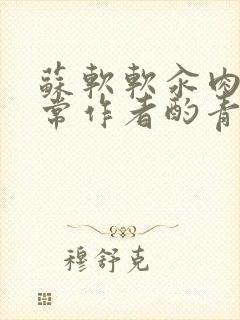 蘇軟軟汆肉
常作者酌青
穆舒克